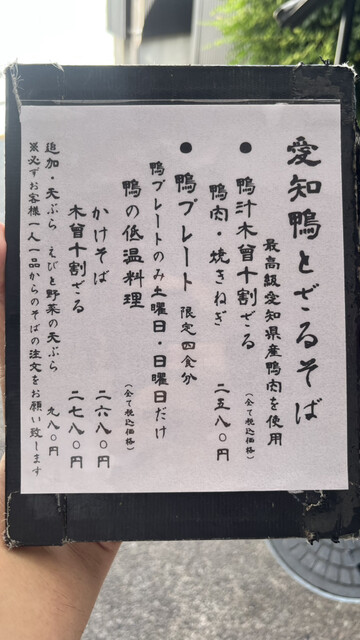 愛知鴨とざるそば
最高級愛知県産鴨肉を使用
● 鴨汁木曾十割ざる (全て税込価格)
鴨肉・焼きねぎ 二五八〇円
● 鴨プレート 限定四食分
鴨プレートのみ土曜日・日曜日だけ
鴨の低温料理 (全て税込価格)
かけそば 二六八〇円
木曾十割ざる 二七八〇円
追加・天ぷら えびと野菜の天ぷら 九八〇円
※必ずお客様一人一品からのそばの注文をお願い致します